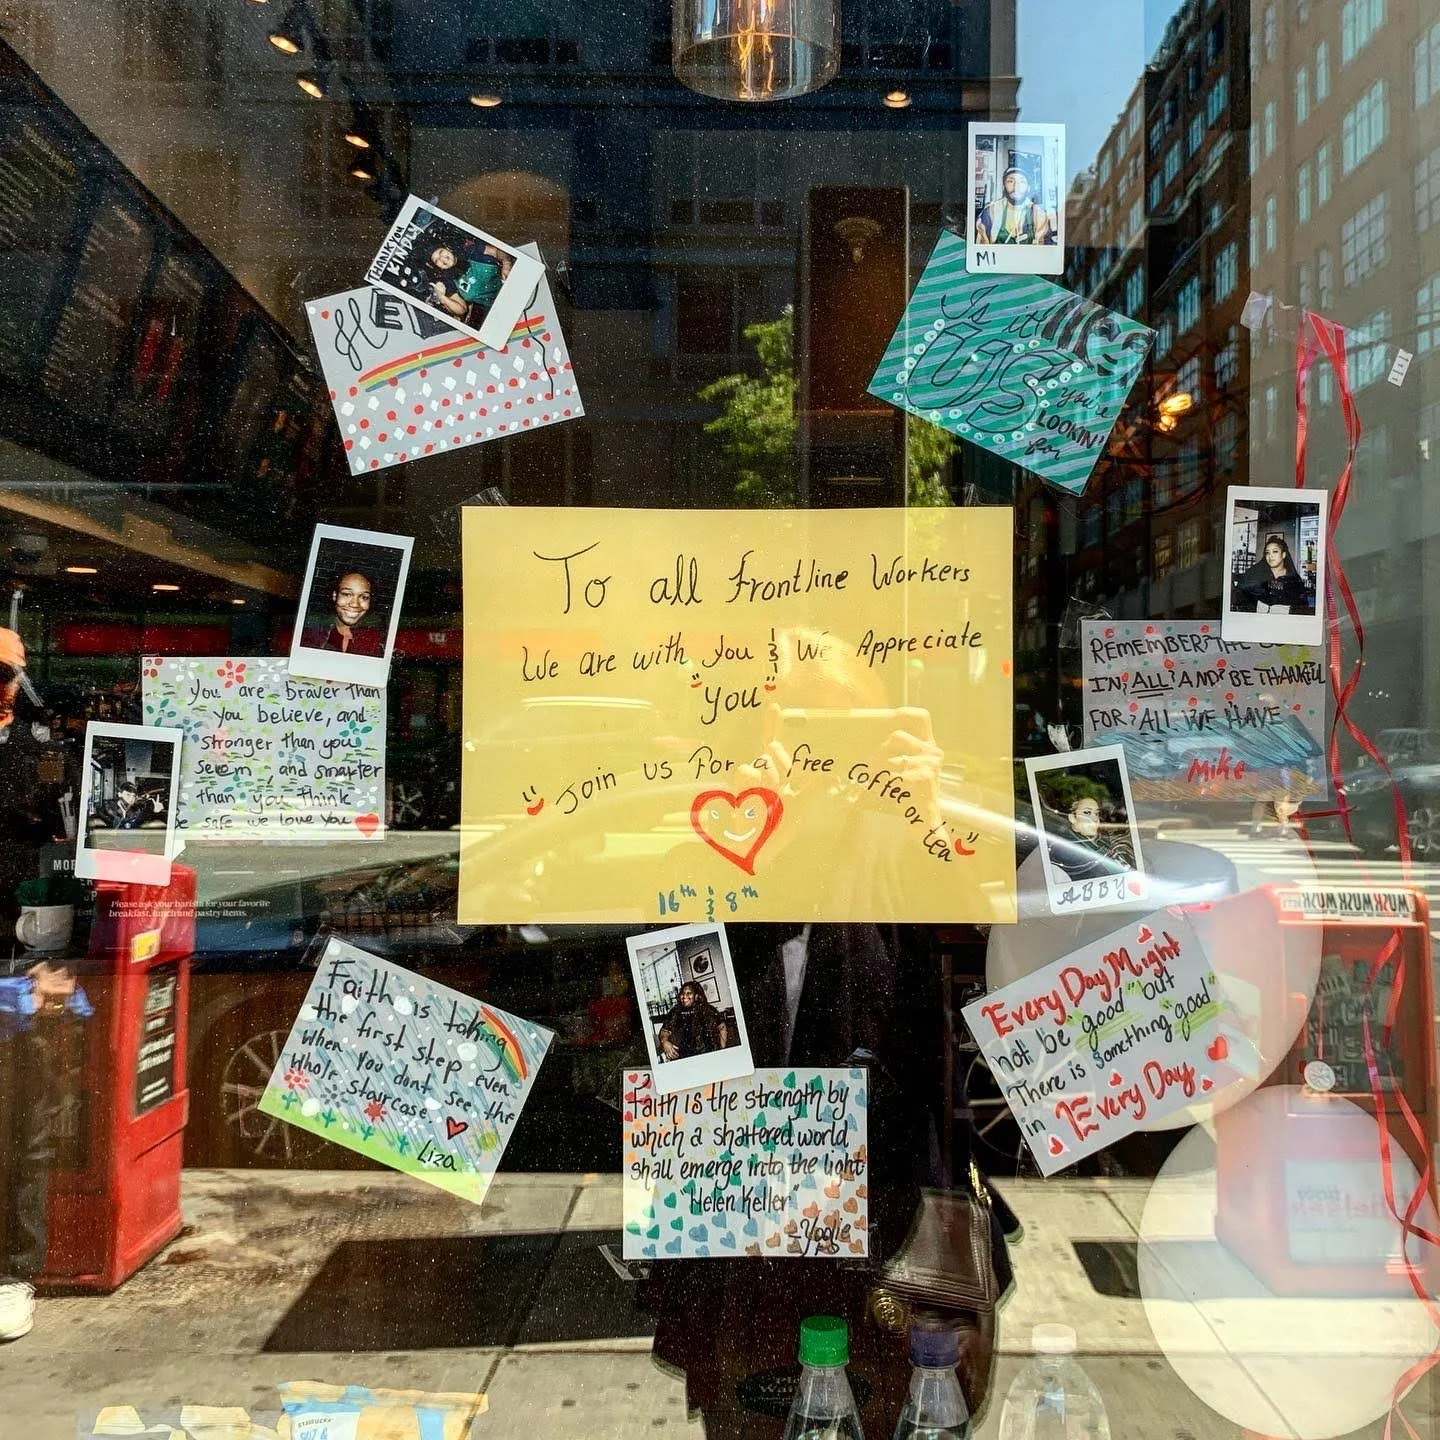 MI
THANK YOU
KINDLY
Is it
US
you're
LOOKIN'
for
To all Frontline Workers
We are with you & We Appreciate
"you"
Join us For a free coffee or tea
16th & 8th
You are braver than
you believe, and
stronger than you
seem, and smarter
than you think
safe we love you
REMEMBER THE
IN ALL AND BE THANKFUL
FOR ALL WE HAVE
Mike
ABBY
Please ask your barista for your favorite
breakfast, lunch and pastry items.
Faith is taking
the first step even
When you dont see the
Whole staircase
Liza
Faith is the strength by
which a shattered world
shall emerge into the light
"Helen Keller"
Every Day Might
not be "good" but
There is something "good"
in Every Day
STARBUCKS